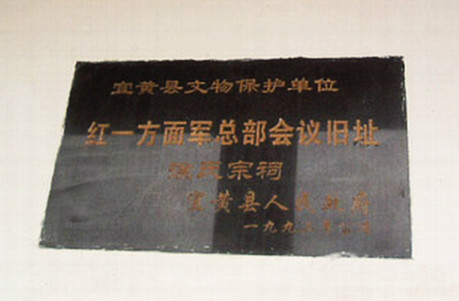 宜黄县文物保护单位
红一方面军总部会议旧址
氏宗祠
宜黄县人民政府
一九九